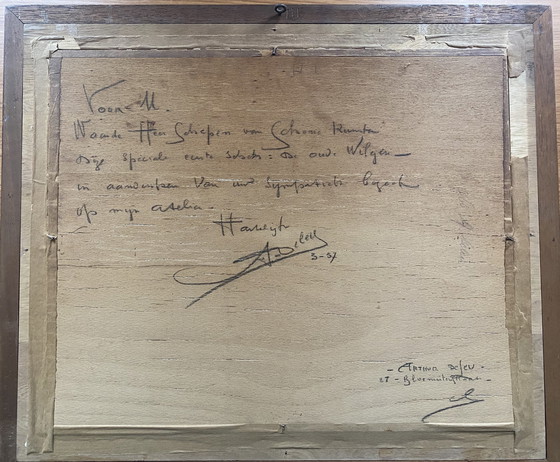 Voor M.
Waarde Heer Schepen van Schone Kunsten
Deze speciale eerste schets: De oude Wilgen -
in aandenken van uw sympathiek bezoek
op mijn atelier.
Hartelijk
ADeleu
3-37
- Arthur Deleu -
27 -